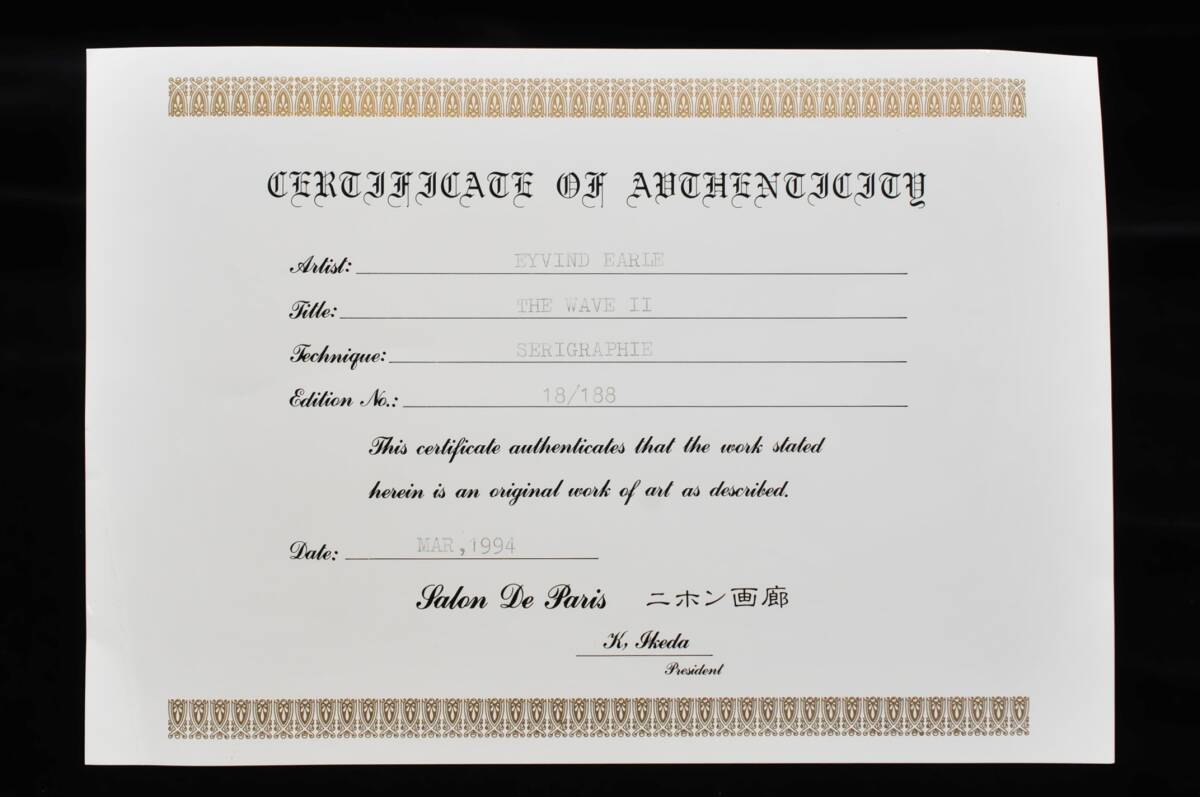 CERTIFICATE OF AUTHENTICITY
Artist: EYVIND EARLE
Title: THE WAVE II
Technique: SERIGRAPHIE
Edition No.: 18/188
This certificate authenticates that the work stated
herein is an original work of art as described.
Date: MAR,1994
Salon De Paris ニホン画廊
K, Ikeda
President